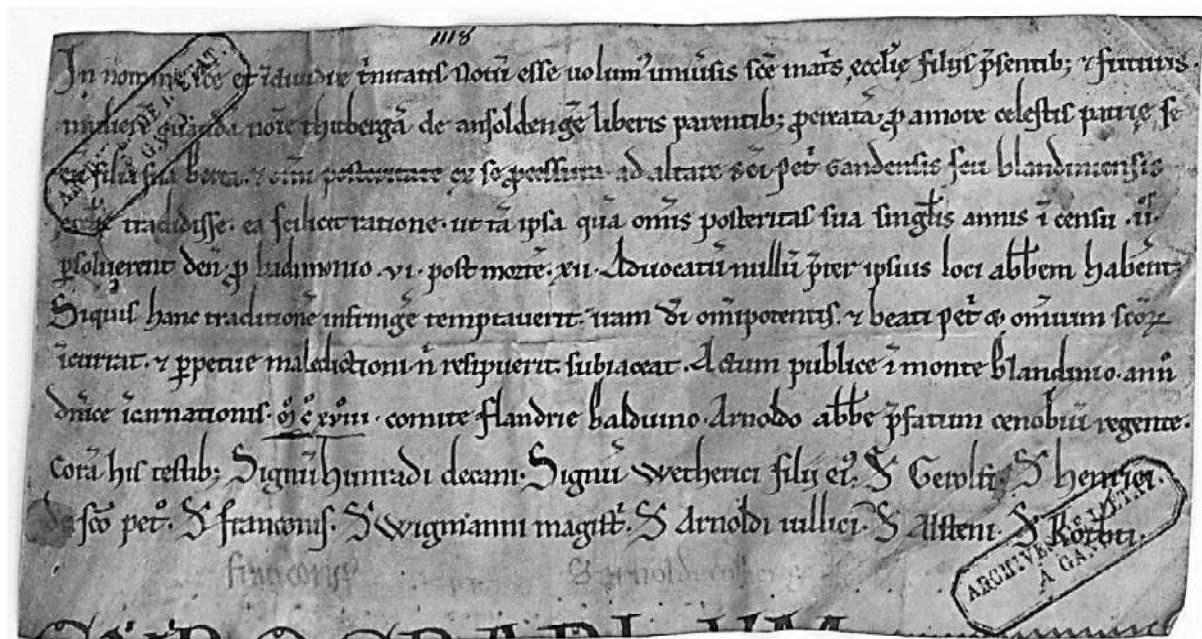 1118
In nomine sce et īdiuidue t̄nitatis Notū esse uolum' uniu͛sis sce mat͛s ęccl̄ię filiis p͛sentib; ⁊ futuris.
mulierē quandā nōie thubergā de ansoldengē liberis parentib; ꝓcreatā, ꝓ amore celestis patrię se
cū filia sua berta. ⁊ om̄i posteritate ex se ꝓcessura. ad altare sc̄i pet͛ Gandensis seu blandiniensis
tradidisse. ea scilicet ratione. ut tā ipsa quā om̄is posteritas sua singl̄is annis ī censu .ii.os
ꝑsoluerent den̄. ꝓ ludimonio .vi. post mortē .xii. Aduocatū nullū p͛ter ipsius loci abb̄em habent;
Siquis hanc traditionē infringe͛ temptauerit. iram d̄i om̄ipotentis. ⁊ beati pet͛ & om̄ium sc̄oꝝ
īcurrat. ⁊ ꝑpetue maledictioni n̄ resipuerit subiaceat. Actum publice ī monte blandinio. ann̄
dn̄ice īcarnationis. m̄ c̄ xviii. comite flandrie balduino. Arnoldo abb̄e p͛fatum cenobiū regente.
Corā his testib; Signū hunradi decani. Signū Wetherici filii ei'. S̄ Gerolfi. S̄ henrici.
de sc̄o pet͛o. S̄ franconis. S̄ Wigmanni magist͛. S̄ Arnoldi uillici. S̄ Alsteni. S̄
franconis S arnoldi
CYROGRAPHUM
ARCHIVES DE L'ÉTAT
A GAND
ARCHIVES DE L'ÉTAT
A GAND